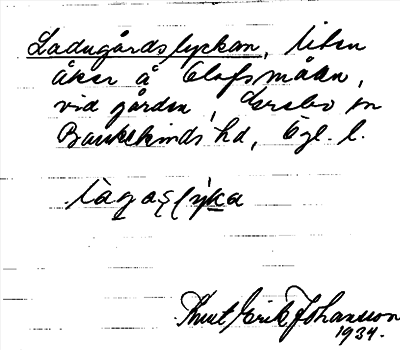 Ladugårdslyckan, liten
åker å Olofsmåen,
vid gården, Örebro sn
Bankekinds hd, Ögl. l.
Knut Erik Johansson
1934.